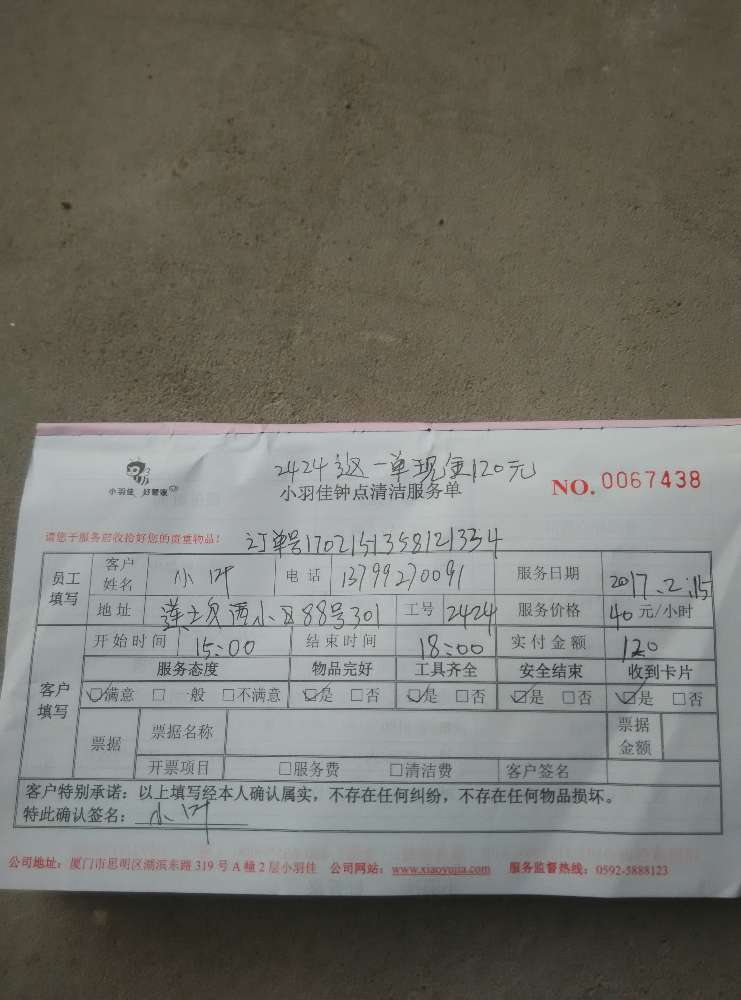 2424返一单现金120元
小羽佳 好管家
小羽佳钟点清洁服务单
NO. 0067438
请您于服务前收拾好您的贵重物品!
订单号1702151358121334
员工填写 客户姓名 小叶 电话 13799270091 服务日期 2017.2.15
地址 莲士友西小区88号301 工号 2424 服务价格 40元/小时
客户填写 开始时间 15:00 结束时间 18:00 实付金额 120
服务态度 物品完好 工具齐全 安全结束 收到卡片
☑满意 □一般 □不满意 ☑是 □否 ☑是 □否 ☑是 □否 ☑是 □否
票据 票据名称 票据金额
开票项目 □服务费 □清洁费 客户签名
客户特别承诺:以上填写经本人确认属实,不存在任何纠纷,不存在任何物品损坏。
特此确认签名:小叶
公司地址:厦门市思明区湖滨东路319号A幢2层小羽佳 公司网站:www.xiaoyujia.com 服务监督热线:0592-5888123